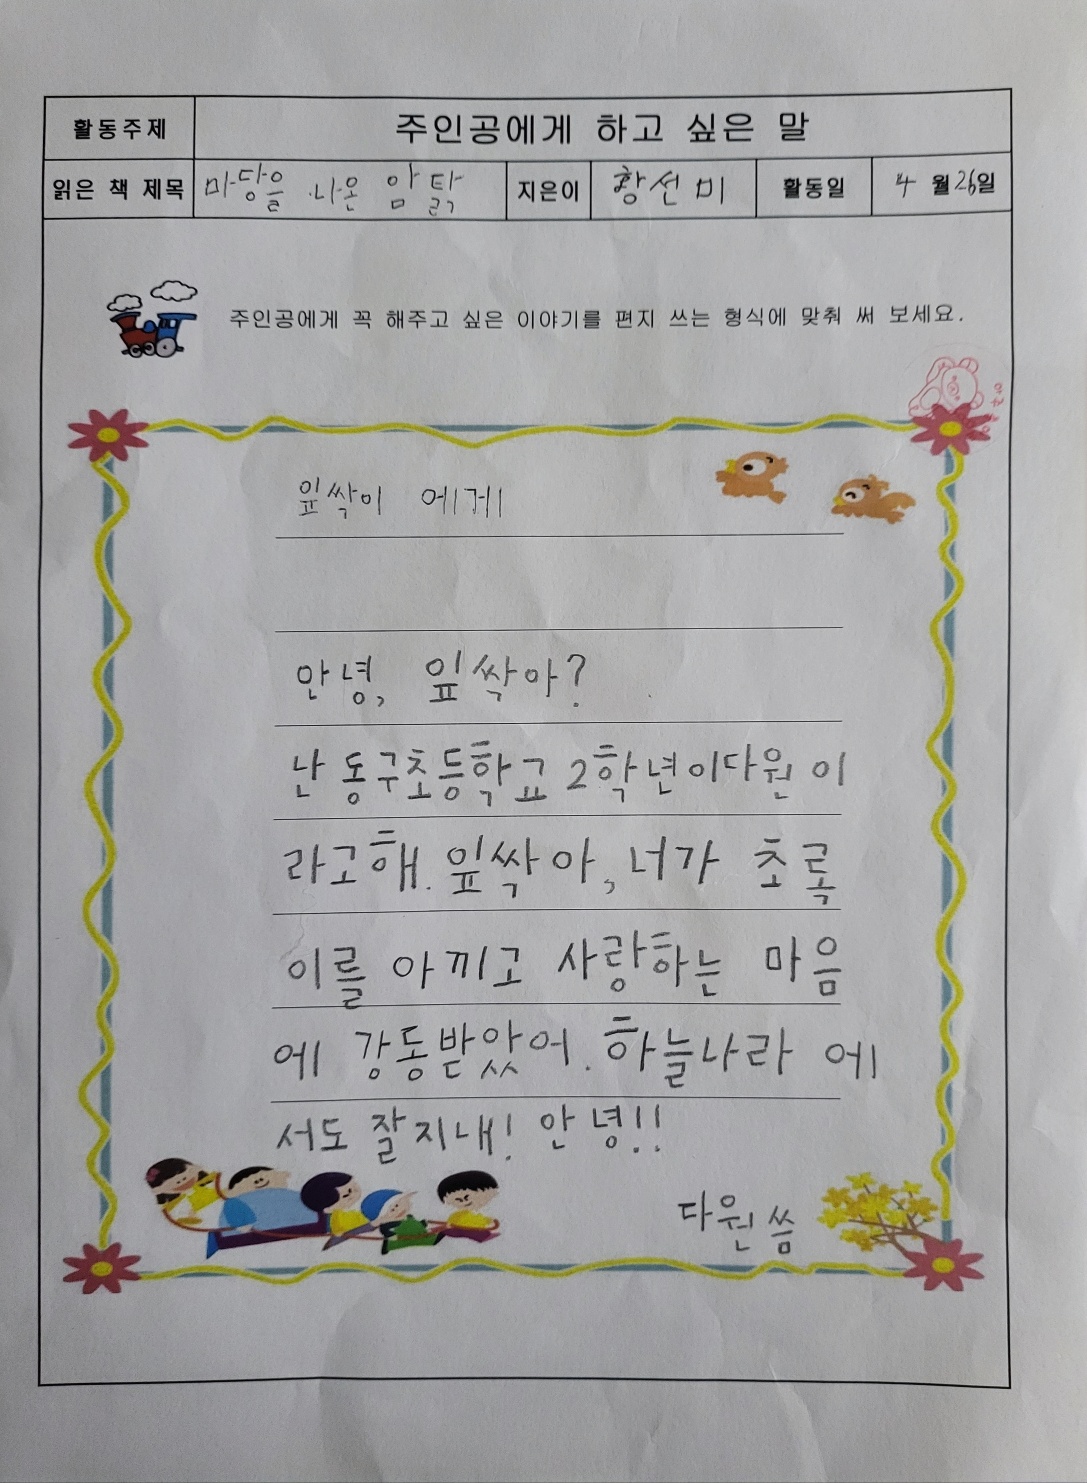 활동주제 주인공에게 하고 싶은 말
읽은 책 제목 마당을 나온 암탉 지은이 황선미 활동일 4월 26일
주인공에게 꼭 해주고 싶은 이야기를 편지 쓰는 형식에 맞춰 써 보세요.
잎싹이 에게
안녕, 잎싹아?
난 동구초등학교 2학년이다원 이
라고해. 잎싹 아, 너가 초록
이를 아끼고 사랑하는 마음
에 강동받았어. 하늘나라 에
서도 잘지내! 안녕!!
다원 씀